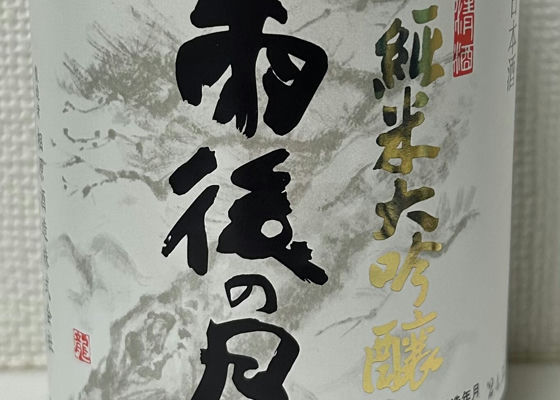 日本酒
清酒
純米大吟醸
雨後の月
龍